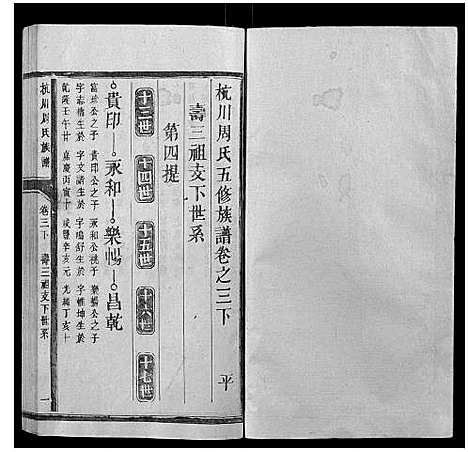 杭川周氏五修族譜卷之三下
平
壽三祖支下世系
第四提
十三世 十四世 十五世 十六世 十七世
貴印 永和 樂暢 昌乾
富球公之子 貴印公之子 永和公桃子 樂暢公之子
字志 生於 字文諸生於 字鳴舒生於 字帷坤生於
乾隆壬午廿 嘉慶丙寅十 咸豐辛亥元 光緒丁亥十
杭川周氏族譜
卷三下
壽三祖支下世系
一